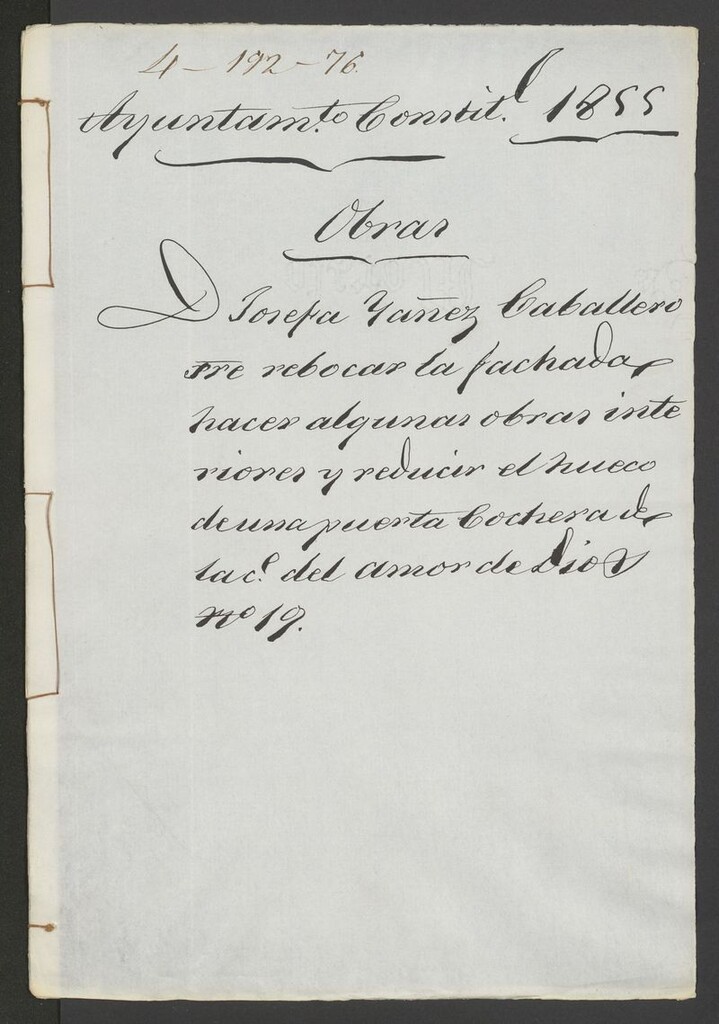 4-192-76.
Ayuntam.to Constit.l 1855
Obras
D Josefa Yañez Caballero
sre rebocar la fachada
hacer algunas obras inte
riores y reducir el hueco
de una puerta Cochera de
la c.e del amor de Dios
nº 19.